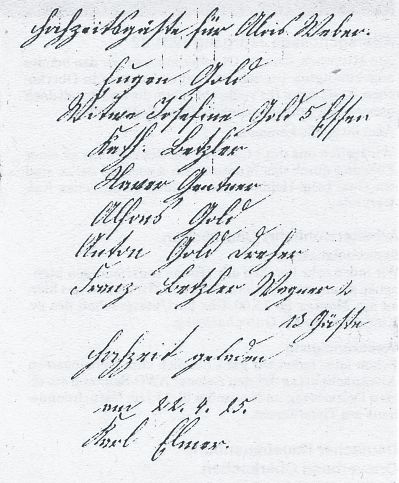 Hochzeitsgäste für Alois Weber.
Eugen Gold
Witwe Josefine Gold 5 Essen
Kath. Betzler
Xaver Gentner
Alfons Gold
Anton Gold Dreher
Franz Betzler Wagner 2
13 Gäste
Hochzeit geladen
am 22. 4. 25.
Karl Elmer.